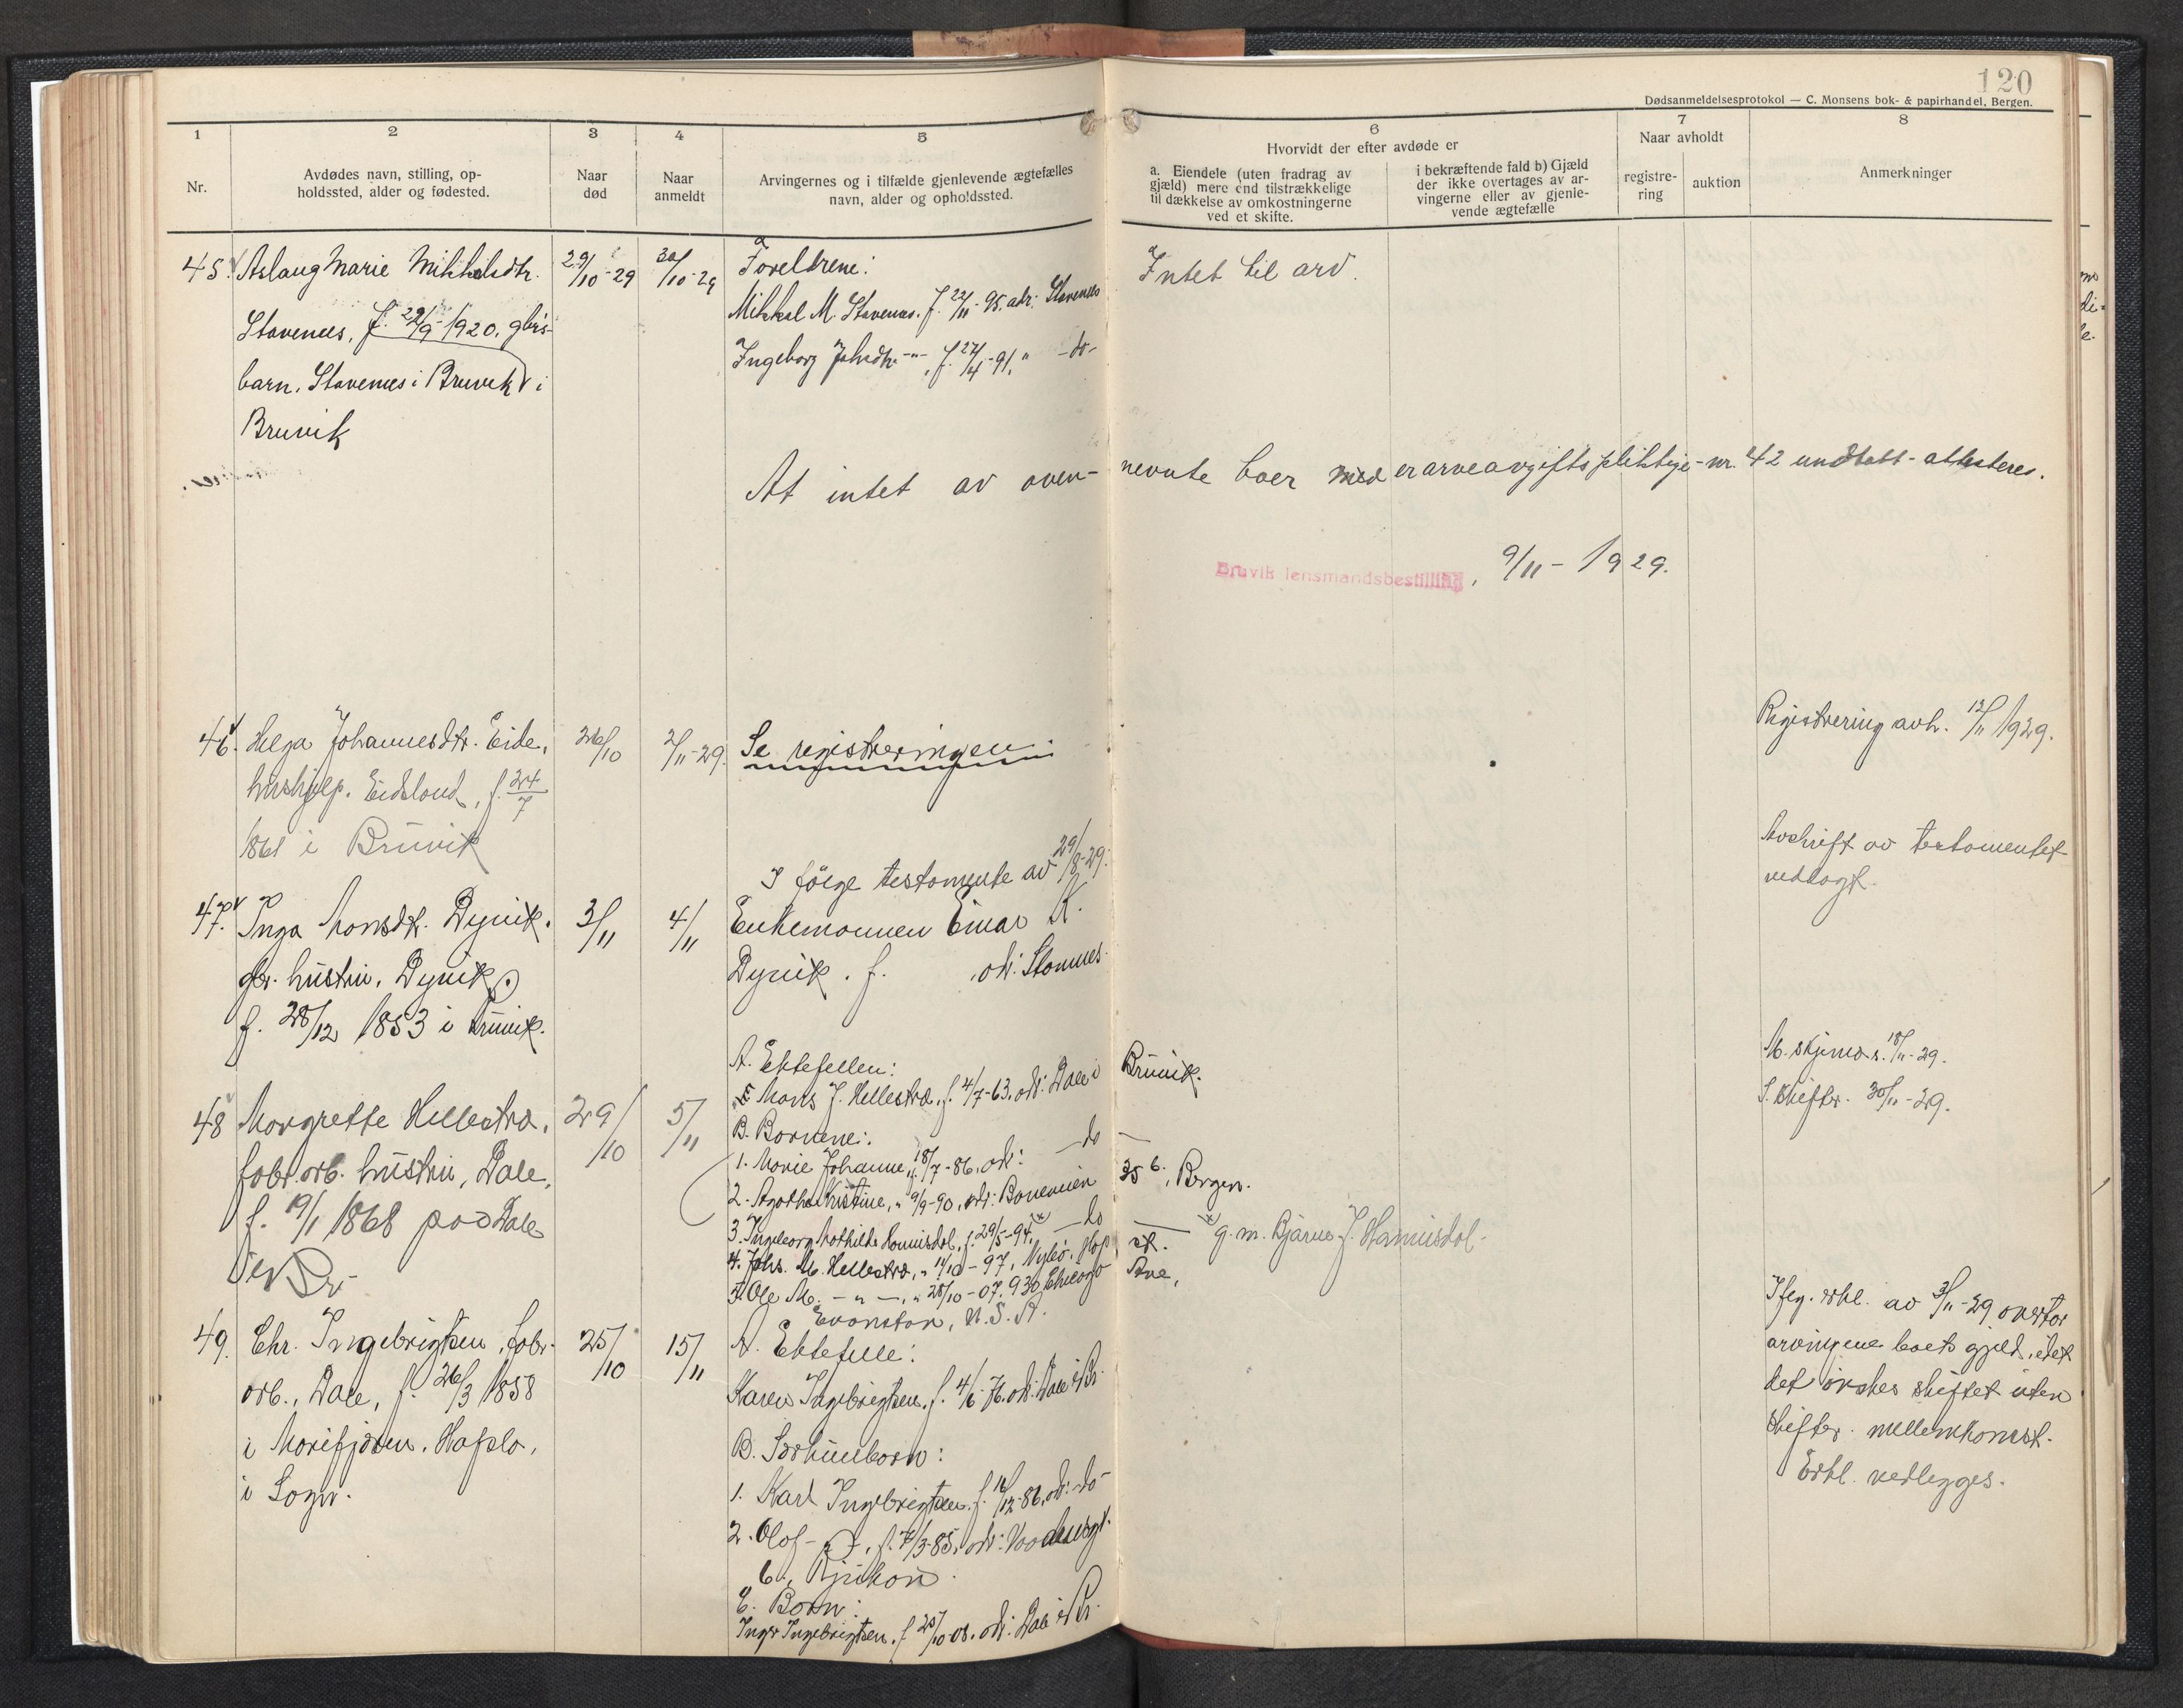 120
Dødsanmeldelsesprotokol — C. Monsens bok- & papirhandel, Bergen.
1 2 3 4 5 6 7 8
Nr.
Avdødes navn, stilling, op-
holdssted, alder og fødested.
Naar
død
Naar
anmeldt
Arvingernes og i tilfælde gjenlevende ægtefælles
navn, alder og opholdssted.
Hvorvidt der efter avdøde er
a. Eiendele (uten fradrag av
gjæld) mere end tilstrækkelige
til dækkelse av omkostningerne
ved et skifte.
i bekræftende fald b) Gjæld
der ikke overtages av ar-
vingerne eller av gjenle-
vende ægtefælle
Naar avholdt
registre-
ring
auktion
Anmerkninger
45. Aslaug Marie Mikkelsdtr.
Stavenes, f. 29/9-1920, gbrs-
barn, Stavenes i Bruvik i
Bruvik
29/10-29
30/10-29
Foreldrene:
Mikkal M. Stavenes. f. 22/11-95. adr. Stavenes
Ingeborg Johsdtr. -"- , f. 27/4-91, " -do-
Intet til arv.
At intet av oven-nevnte boer med er arveavgiftspliktige - nr. 42 undtatt - attesteres.
Bruvik lensmandsbestilling, 9/11-1929.
46. Helga Johannesdtr. Eide,
hushjelp. Eidsland, f. 24/7
1861 i Bruvik
26/10
2/11-29.
Se registreringen.
Registrering avh. 12/11 1929.
47. Inga Monsdt. Dyvik.
gbr. hustru, Dyvik,
f. 28/12 1853 i Bruvik.
3/11
4/11
I følge testamente av 29/8-29:
Enkemannen Einar K.
Dyvik. f. , adr: Stamnes.
Avskrift av testamentet
vedlagt.
48 Margrette Hellestræ,
fabr.arb. hustru, Dale,
f. 19/1 1868 paa Dale
i Br.
29/10
5/11
A. Ektefellen:
Mons J. Hellestræ, f. 4/7-63, adr: Dale i Bruvik.
B. Barnene:
1. Marie Johanne, f. 18/7-86, adr: - do -
2. Agatha Kristine, " 9/9-90, adr: 35 b, Bergen.
3. Ingeborg Mathilde Hamisdal, f. 29/5-94, - do - g. m. Bjarne J. Hamisdal.
4. Johs. M. Hellestræ, " 11/10-97, Hop st.
5. Ole M. -"-, " 28/10-07. 930 Chicago Ave,
Evanston, U.S.A.
M. skjema s. 18/11-29.
S. skifter. 30/11-29.
49. Chr. Ingebrigtsen, fabr-
arb., Dale, f. 26/3 1858
i Marifjøren. Hafslo,
i Sogn.
25/10
15/11
A. Ektefelle:
Karen Ingebrigtsen, f. 4/6-76. adr: Dale i Br.
B. Særkullborn:
1. Karl Ingebrigtsen. f. 16/12-86, adr: -do-
2. Olaf -"-, f. 7/3-85, adr:
6, Rjukan.
C. Born:
Inger Ingebrigtsen, f. 25/10-08. adr: Dale i Br.
Iflg. erkl. av 3/11-29 overtar
arvingene boets gjeld, idet
det ønskes skiftet uten
skifter. mellemkomst.
Erkl. vedlegges.